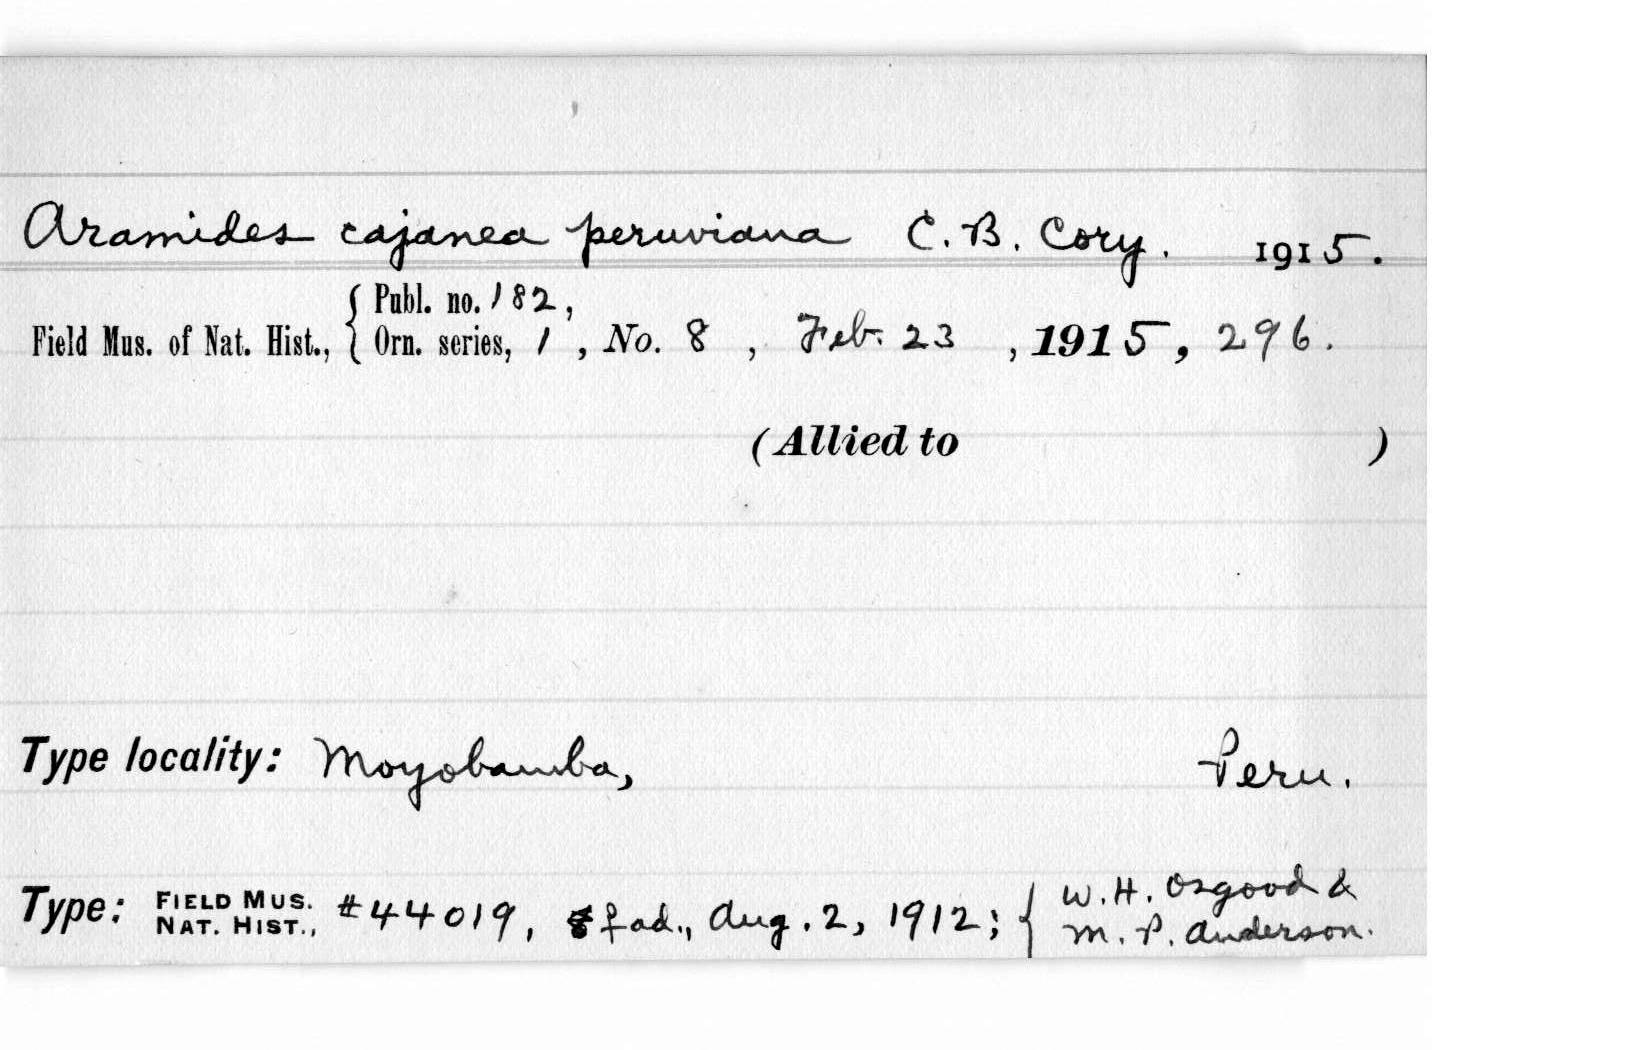 Aramides cajanea peruviana C. B. Cory. 1915.
Publ. no. 182,
Field Mus. of Nat. Hist., { Orn. series, 1, No. 8, Feb. 23, 1915, 296.
(Allied to )
Type locality: Moyobamba, Peru.
Type: FIELD MUS. NAT. HIST., #44019, ♀ ad., Aug. 2, 1912; { W. H. Osgood &
M. P. Anderson.